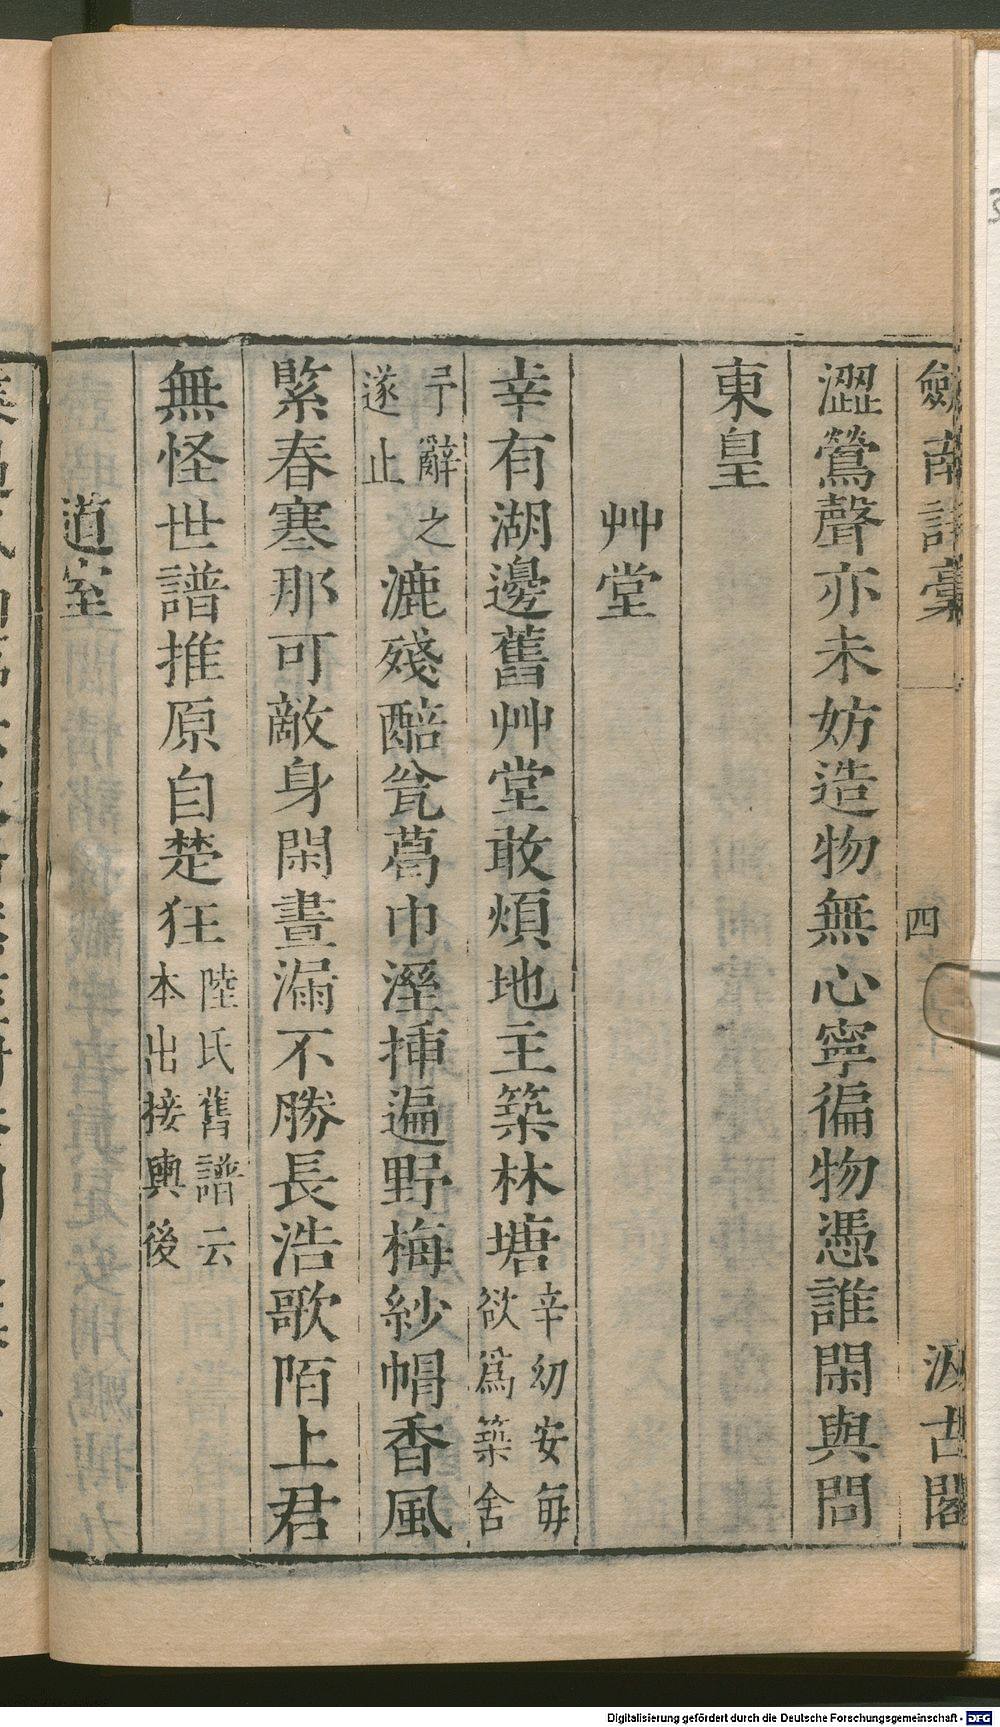 劒南詩藁
四
汲古閣
澀鶯聲亦未妨造物無心寧徧物憑誰閑與問
東皇
艸堂
幸有湖邊舊艸堂敢煩地主築林塘辛幼安每欲爲築舍
予辭之遂止漉殘醅瓮葛巾溼揷遍野梅紗帽香風
緊春寒那可敵身閑晝漏不勝長浩歌陌上君
無怪世譜推原自楚狂陸氏舊譜云本出接輿後
道室
Digitalisierung gefördert durch die Deutsche Forschungsgemeinschaft - DFG